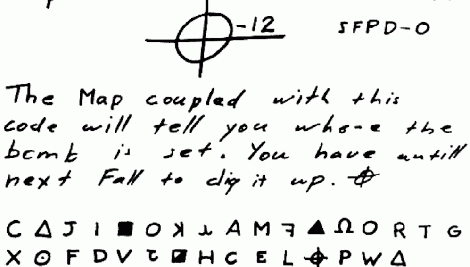 ⌖ -12 SFPD-0
The Map coupled with this
code will tell you where the
bomb is set. You have untill
next Fall to dig it up. ⌖
C Δ J I ■ O ꓘ ⅄ A M ꟻ ▲ Ω O R T G
X ⊙ F D V ꞇ ◪ H C E L ⌖ P W Δ